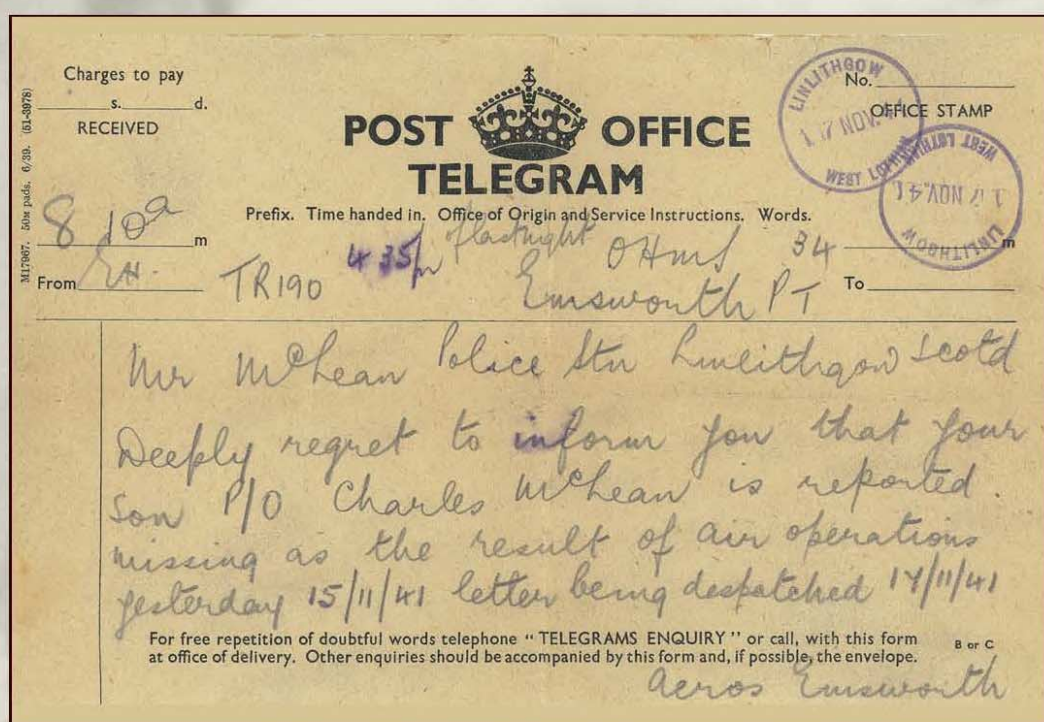 Charges to pay
s. d.
RECEIVED
POST OFFICE
TELEGRAM
No.
OFFICE STAMP
LINLITHGOW
17 NOV. 41
WEST LOTHIAN
LINLITHGOW
17 NOV. 41
WEST LOTHIAN
M17967. 50M pads. 6/39. (51-3978)
Prefix. Time handed in. Office of Origin and Service Instructions. Words.
8 10a m
4 35 pm of lastnight OHMS 34 m
From EH. TR190 Emsworth PT To
Mr McLean Police Stn Linlithgow Scotd
Deeply regret to inform you that your
son P/O Charles McLean is reported
missing as the result of air operations
yesterday 15/11/41 letter being despatched 17/11/41
For free repetition of doubtful words telephone “ TELEGRAMS ENQUIRY ” or call, with this form
at office of delivery. Other enquiries should be accompanied by this form and, if possible, the envelope.
B or C
Aeros Emsworth